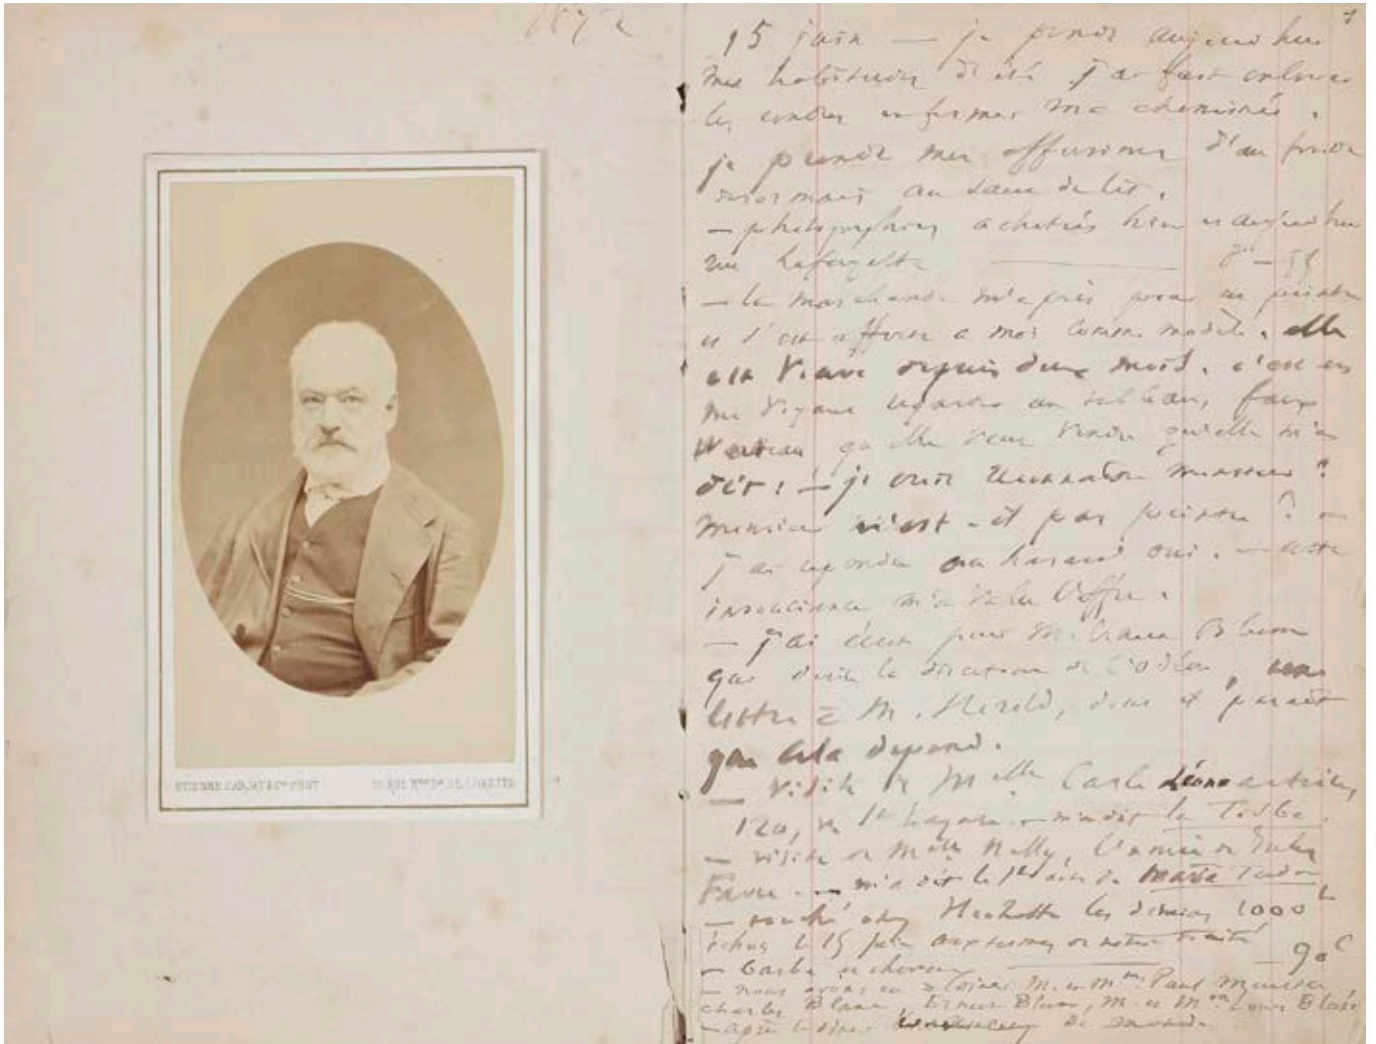 1872
1
15 juin — je prends aujourd'hui
mes habitudes d'été. j'ai fait enlever
les cendres et fermer ma cheminée.
je prends mes d'eau froide
désormais au saut du lit.
— photographies achetées hier et aujourd'hui
rue Lafayette
— la marchande m'a pris pour un peintre
et s'est offerte à moi comme modèle. elle
est veuve depuis deux mois. c'est en
me voyant regarder un tableau, faux
Watteau qu'elle veut vendre qu'elle m'a
dit : — je crois reconnaître monsieur ?
monsieur n'est-il pas peintre ? —
j'ai répondu au hasard oui. — cette
insouciance m'a valu l'offre.
— j'ai écrit pour M.
qui désire la direction de l'Odéon, une
lettre à M. Hérold, dont il paraît
que cela dépend.
— visite de Melle Carle Léona artiste,
120, r. St Lazare. — m'a dit la Tisbe.
— visite de Melle Nelly, l'amie de Jules
Favre. — m'a dit le 1er acte de Marie Tudor
— touché chez Hachette les derniers 1000
échus le 15 juin aux termes de notre traité
— barbe et cheveux — 90c
— nous avons eu à dîner M. et Mme Paul Meurice
Charles Blanc, Ernest Blum, M. et Mme Louis Blanc
— après le dîner de monde
ETIENNE CARJAT & Cie PHOT
RUE Nre De DE LORETTE